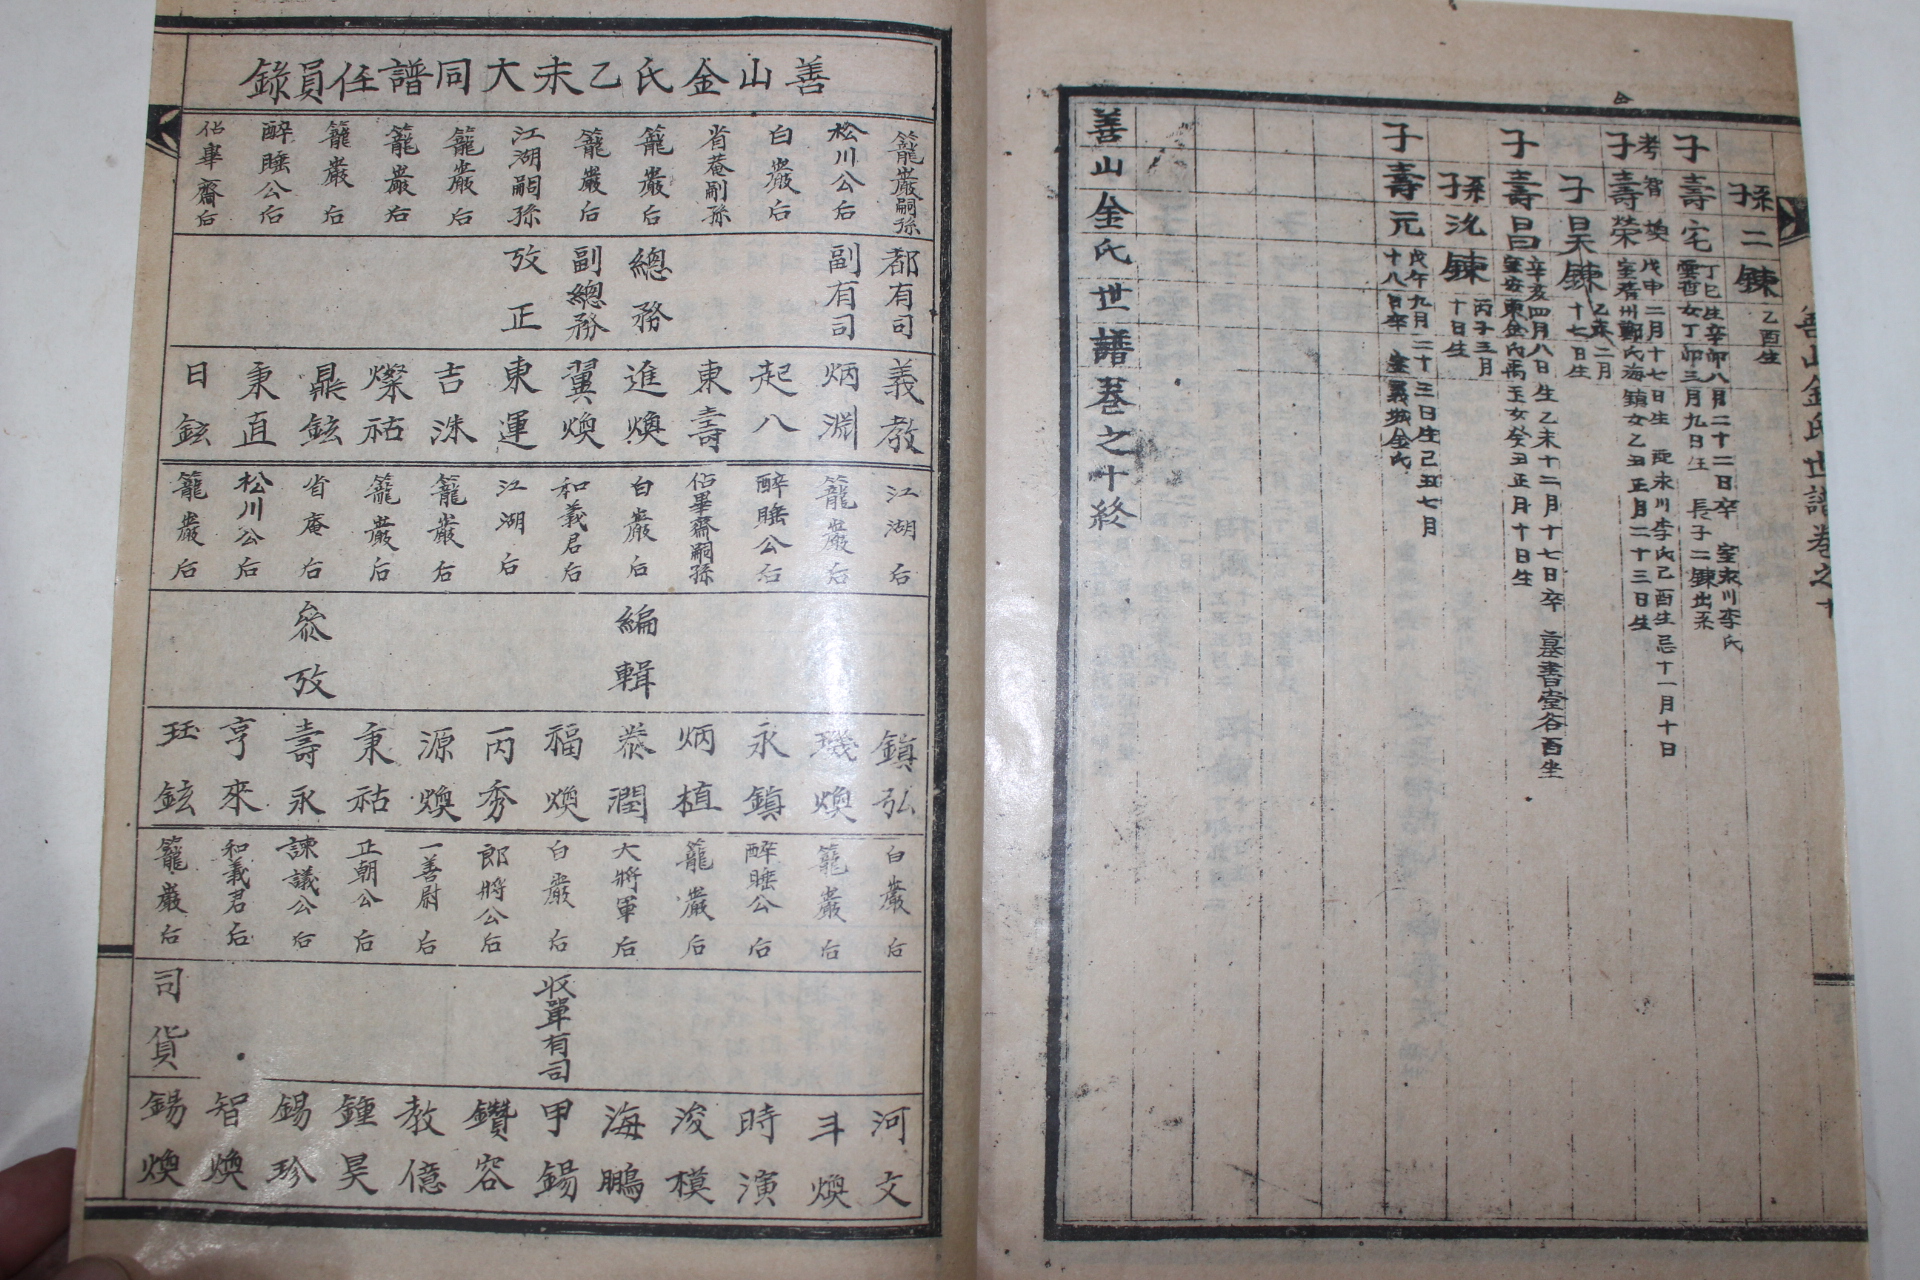 善山金氏世譜卷之十
孫二鍊 乙酉生
子壽宅 丁巳生辛卯八月二十二日卒 室永川李氏
雲哲女丁卯三月九日生 長子二鍊出系
考智煥 戊申二月十七日生 配永川李氏己酉生忌十一月十日
子壽榮 室海州鄭氏海鎮女乙丑正月二十三日生
子昊鍊 乙亥二月
十七日生
子壽昌 辛亥四月八日生乙未十二月十七日卒 墓書堂谷酉坐
室安東金氏禹玉女癸丑正月十日生
孫洺鍊 丙子三月
十日生
子壽元 戊午九月二十三日生己丑七月
十八日卒 室義城金氏
善山金氏世譜卷之十終
善山金氏乙未大同譜任員錄
籠巖嗣孫 都有司 義教
松川公后 副有司 炳淵
白巖后 起八
省菴嗣孫 東壽
籠巖后 總務 進煥
籠巖后 副總務 翼煥
江湖嗣孫 攷正 東運
籠巖后 吉洙
籠巖后 燦祜
籠巖后 鼎鉉
醉睡公后 秉直
佔畢齋后 日鉉
江湖后 鎮弘
籠巖后 璣煥
醉睡公后 永鎮
佔畢齋嗣孫 炳植
白巖后 編輯 泰潤
和義君后 福煥
江湖后 丙秀
籠巖后 源煥
籠巖后 秉祜
省庵后 參攷 壽永
松川公后 亨來
籠巖后 珏鉉
白巖后 河文
籠巖后 斗煥
醉睡公后 時演
籠巖后 浚模
大將軍后 海鵬
白巖后 收單有司 甲錫
郎將公后 鑽容
一善尉后 教億
正朝公后 鍾昊
諫議公后 錫珍
和義君后 智煥
籠巖后 司貨 錫煥